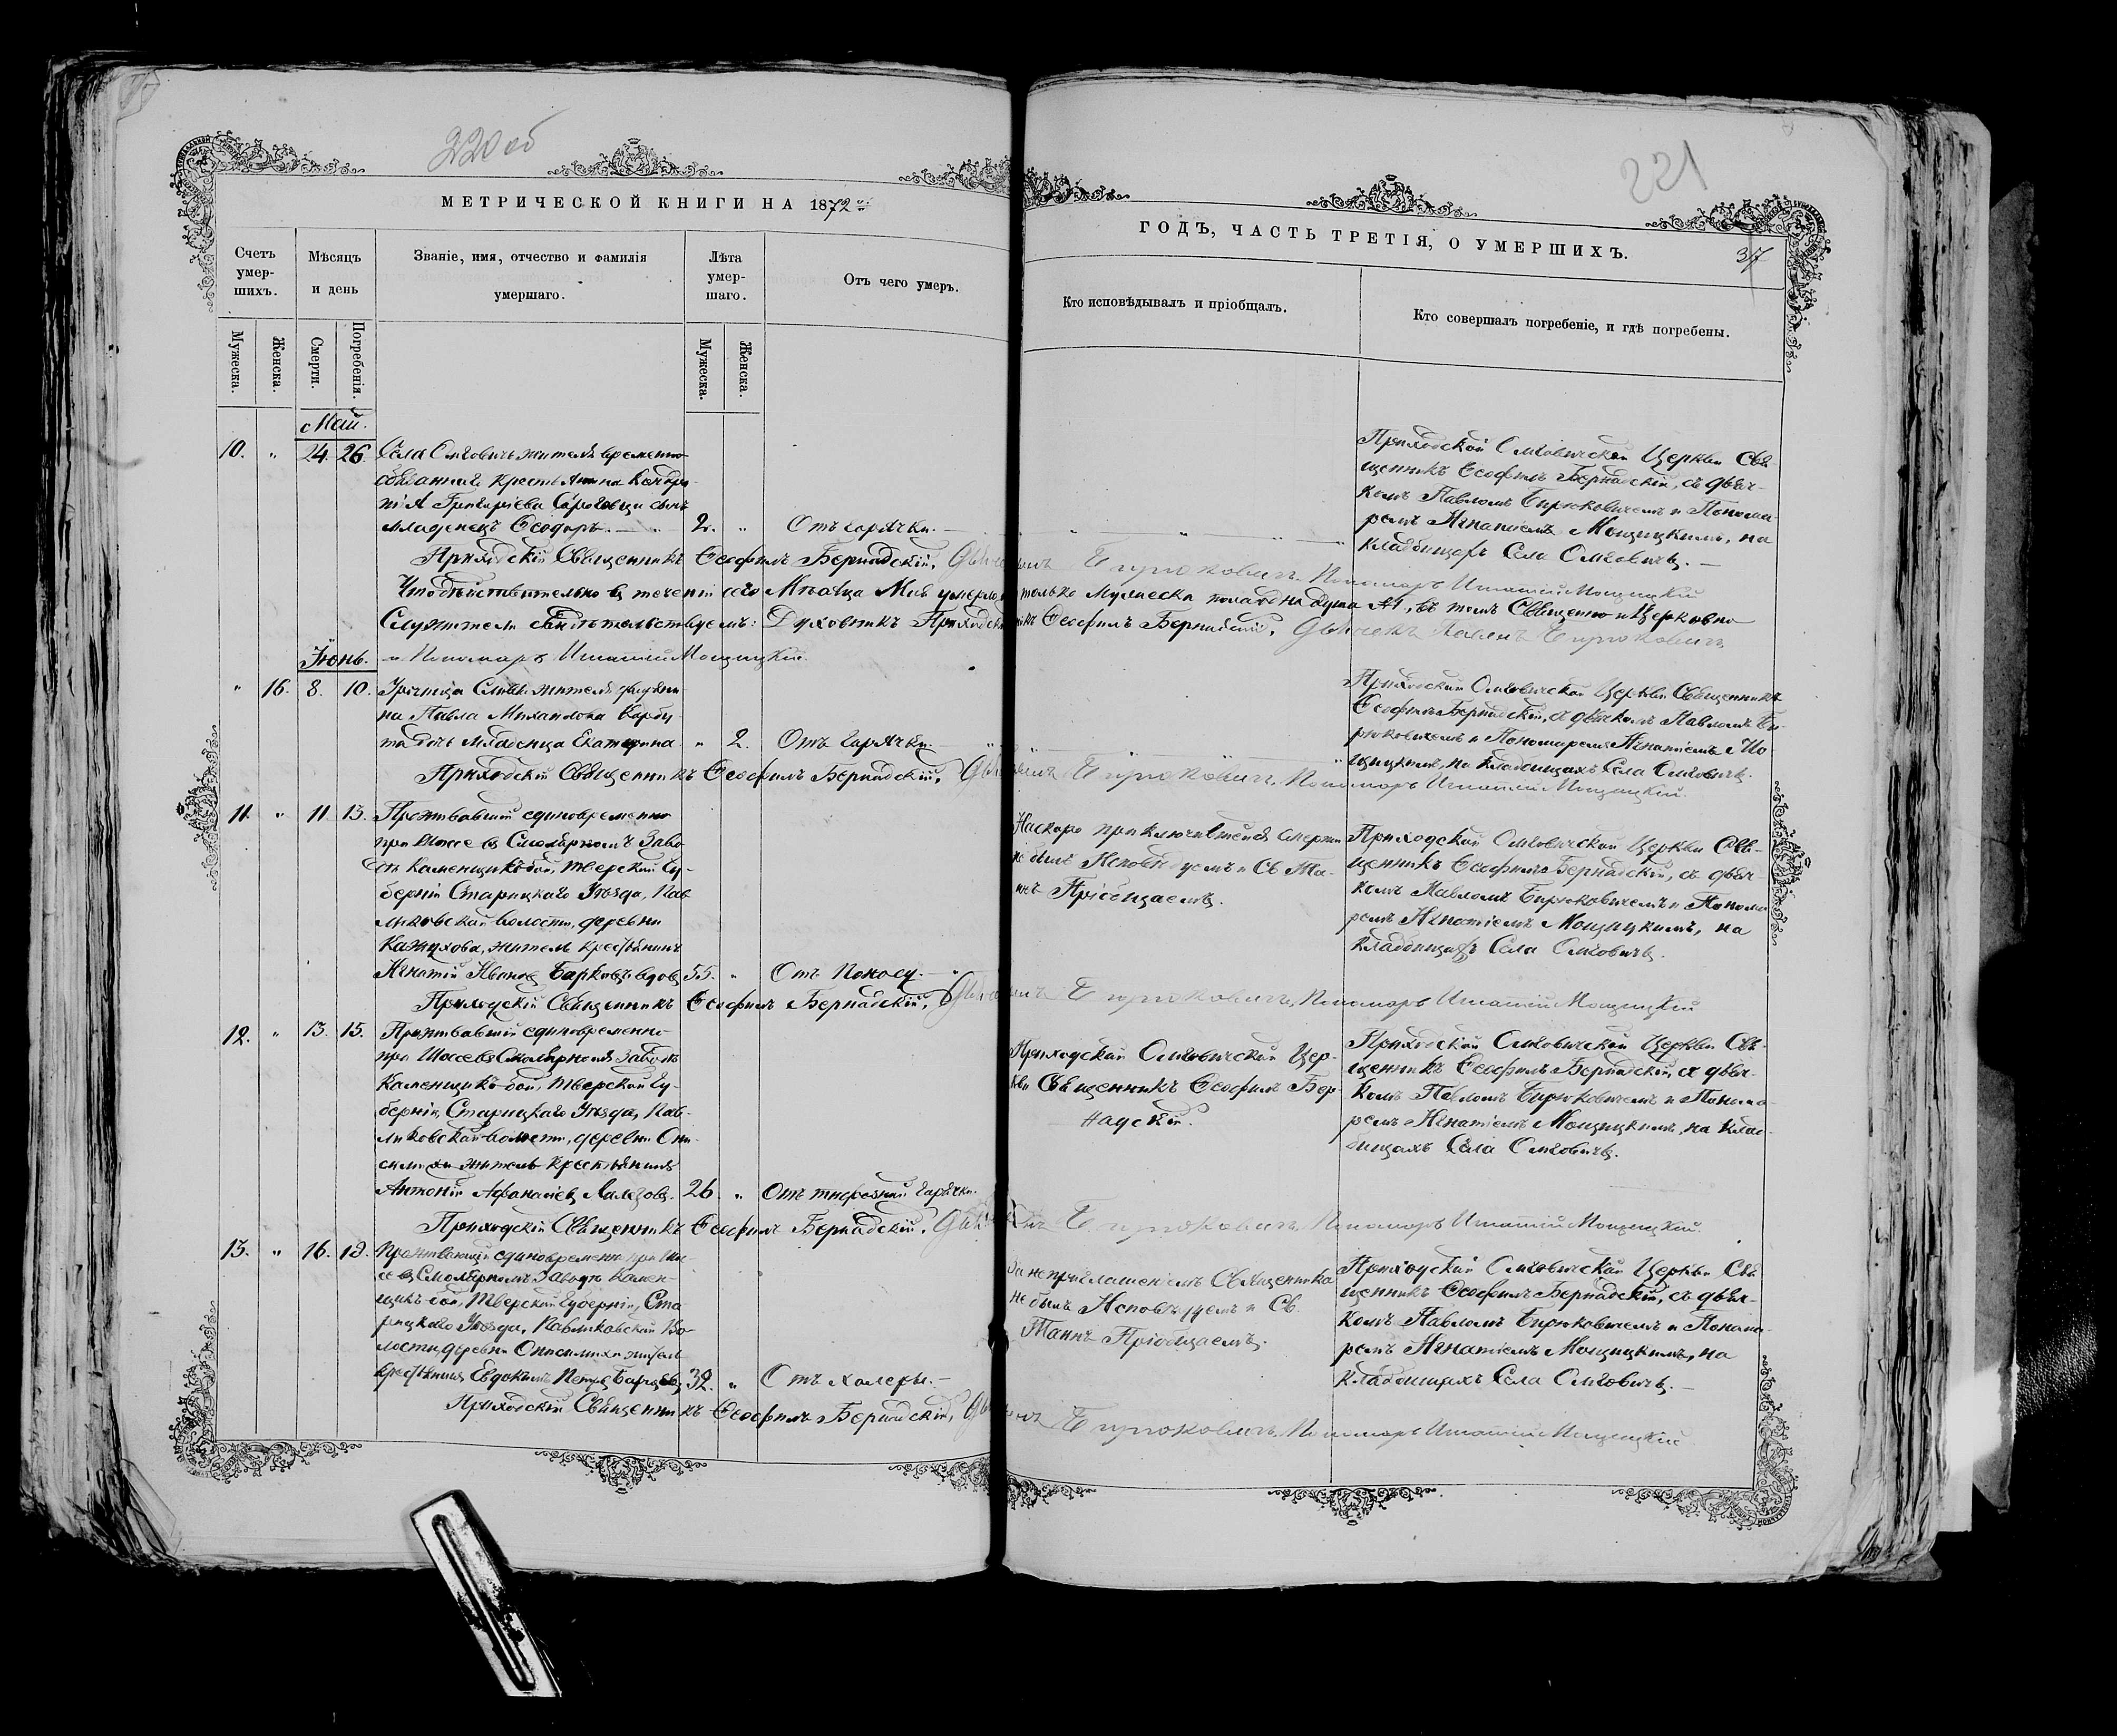 220 об
МЕТРИЧЕСКОЙ КНИГИ НА 1872 й
Счетъ умер-шихъ.
Мѣсяцъ и день
Званіе, имя, отчество и фамилія умершаго.
Лѣта умер-шаго.
Отъ чего умеръ.
Мужеска.
Женска.
Смерти.
Погребенія.
Мужеска.
Женска.
221
ГОДЪ, ЧАСТЬ ТРЕТІЯ, О УМЕРШИХЪ.
37
Кто исповѣдывалъ и пріобщалъ.
Кто совершалъ погребеніе, и гдѣ погребены.
Май.
10. " 24. 26. Села Омѣговичъ жителя временно
обязаннаго крестьянина Кондра-
тія Григорьева сынъ
младенецъ Ѳеодоръ. — " 2. " Отъ горячки. —
Приходской Церкви Свя-
щенникъ Ѳеофилъ Бернадскій, съ дьяч-
комъ Павломъ Бирюковичемъ и Понома-
ремъ Игнатіемъ Мощицкимъ, на
кладбищахъ Села
Приходскій Священникъ Ѳеофилъ Бернадскій, Бирюковичъ. Пономарь Игнатій Мощицкій
Что дѣйствительно въ теченіи сего Мѣсяца Мая умерло только мужеска пола одна душа №1, въ томъ Священно и Церковно
Служители свидѣтельствуемъ: Духовникъ Приходскій Ѳеофилъ Бернадскій, Дьячекъ Павелъ Бирюковичъ
Іюнь. и Пономарь Игнатій Мощицкій.
" 16. 8. 10. жителя
на Павла Михайлова
дочь младенца Екатерина " 2. Отъ горячки. —
Приходской Церкви Священникъ
Ѳеофилъ Бернадскій, съ дьячкомъ Павломъ Би-
рюковичемъ и Пономаремъ Игнатіемъ Мо-
щицкимъ, на кладбищахъ Села
Приходскій Священникъ Ѳеофилъ Бернадскій, Бирюковичъ. Пономарь Игнатій Мощицкій.
11. " 11 13. Проживавшій единовременно
при Шоссе въ Смолярномъ Заво-
дѣ каменщикъ Тверской Гу-
берніи Старицкаго Уѣзда, Пав-
ликовской волости, деревни
житель крестьянинъ
Игнатій Ивановъ вдовъ 55. " Отъ Поносу. —
Наскоро приключившейся смерти
не былъ Исповѣдуемъ и Св. Та-
инъ Пріобщаемъ.
Приходской Церкви Свя-
щенникъ Ѳеофилъ Бернадскій, съ дьяч-
комъ Павломъ Бирюковичемъ и Понома-
ремъ Игнатіемъ Мощицкимъ, на
кладбищахъ Села
Приходскій Священникъ Ѳеофилъ Бернадскій, Бирюковичъ, Пономарь Игнатій Мощицкій
12. " 13. 15. Проживавшій единовременно
при Шоссе въ Смолярномъ Заводѣ
Каменщикъ Тверской Гу-
берніи, Старицкаго Уѣзда, Пав-
ликовской волости, деревни Они-
симихи житель крестьянинъ
Антоній Афанасіевъ 26. " Отъ тифозной горячки.
Приходской Цер-
кви Священникъ Ѳеофилъ Бер-
надскій.
Приходской Церкви Свя-
щенникъ Ѳеофилъ Бернадскій, съ дьяч-
комъ Павломъ Бирюковичемъ и Понома-
ремъ Игнатіемъ Мощицкимъ, на клад-
бищахъ Села
Приходскій Священникъ Ѳеофилъ Бернадскій, Бирюковичъ, Пономарь Игнатій Мощицкій.
13. " 16. 18. Проживающій единовременно при Шос-
се въ Смолярномъ Заводѣ Камен-
щикъ Тверской Губерніи, Ста-
рицкаго Уѣзда, Павликовской Во-
лости, деревни Онисимихи житель
крестьянинъ Евдокимъ Петровъ 32. " Отъ Холеры. —
За неприглашеніемъ Священника
не былъ Исповѣдуемъ и Св.
Таинъ Пріобщаемъ.
Приходской Церкви Свя-
щенникъ Ѳеофилъ Бернадскій, съ дьяч-
комъ Павломъ Бирюковичемъ и Понома-
ремъ Игнатіемъ Мощицкимъ, на
кладбищахъ Села
Приходскій Священникъ Ѳеофилъ Бернадскій, Бирюковичъ, Пономарь Игнатій Мощицкій